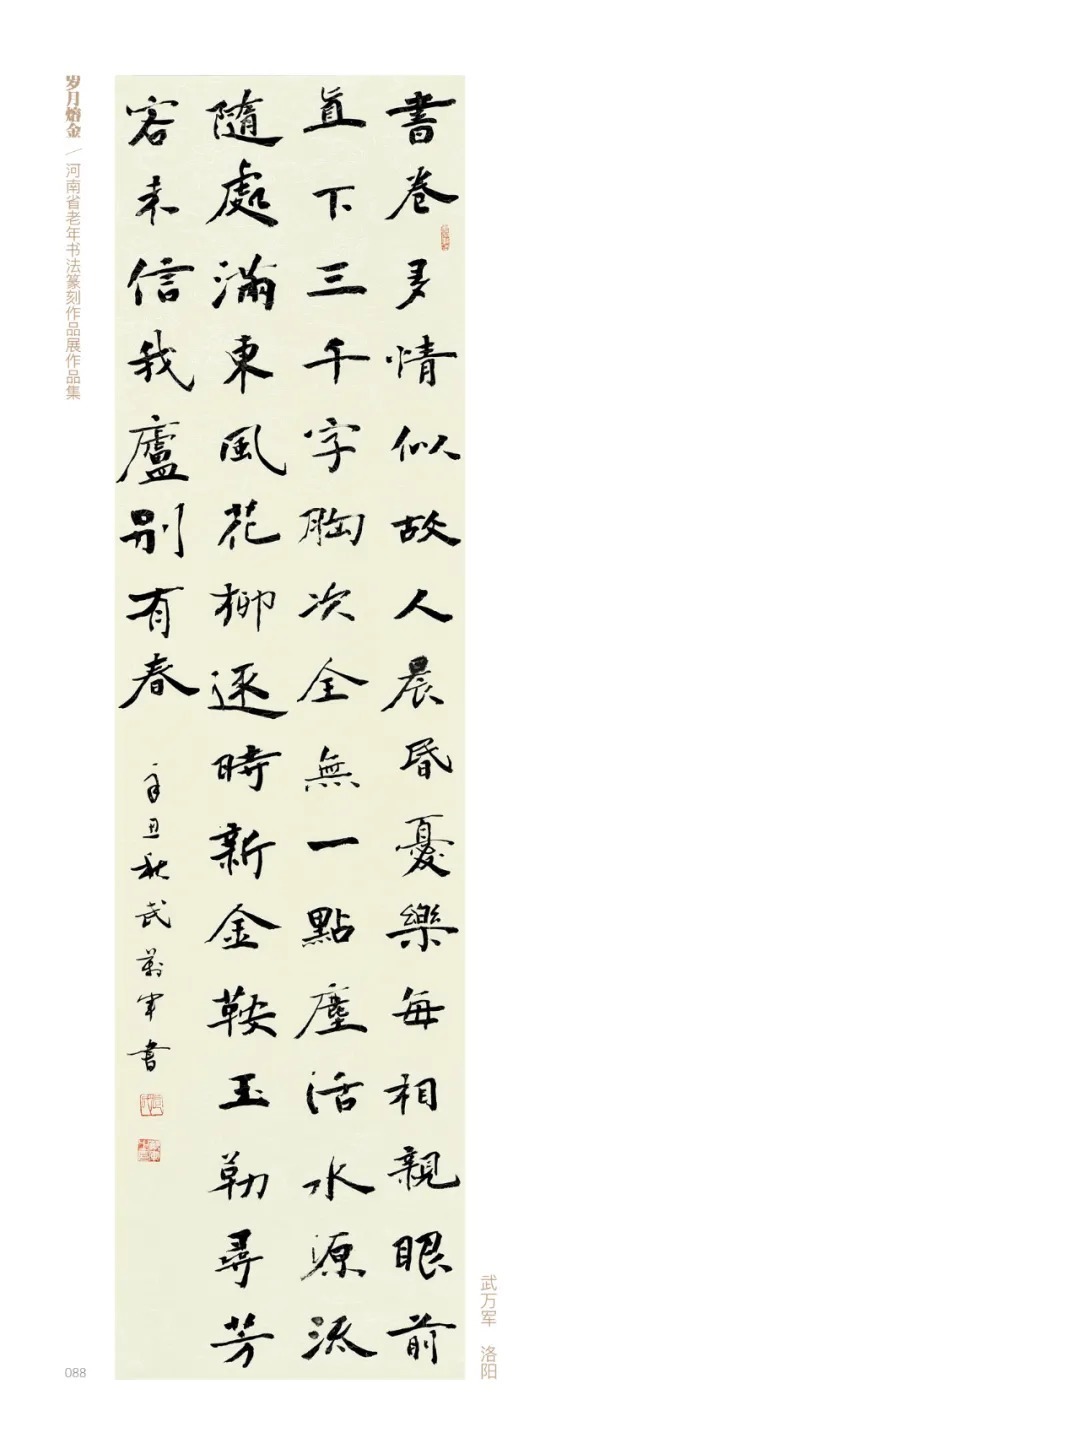 書卷多情似故人晨昏憂樂每相親眼前
直下三千字胸次全無一點塵活水源流
隨處滿東風花柳逐時新金鞍玉勒尋芳
客未信我廬別有春
辛丑秋武萬軍書
岁月熔金／河南省老年书法篆刻作品展作品集
武万军 洛阳
088